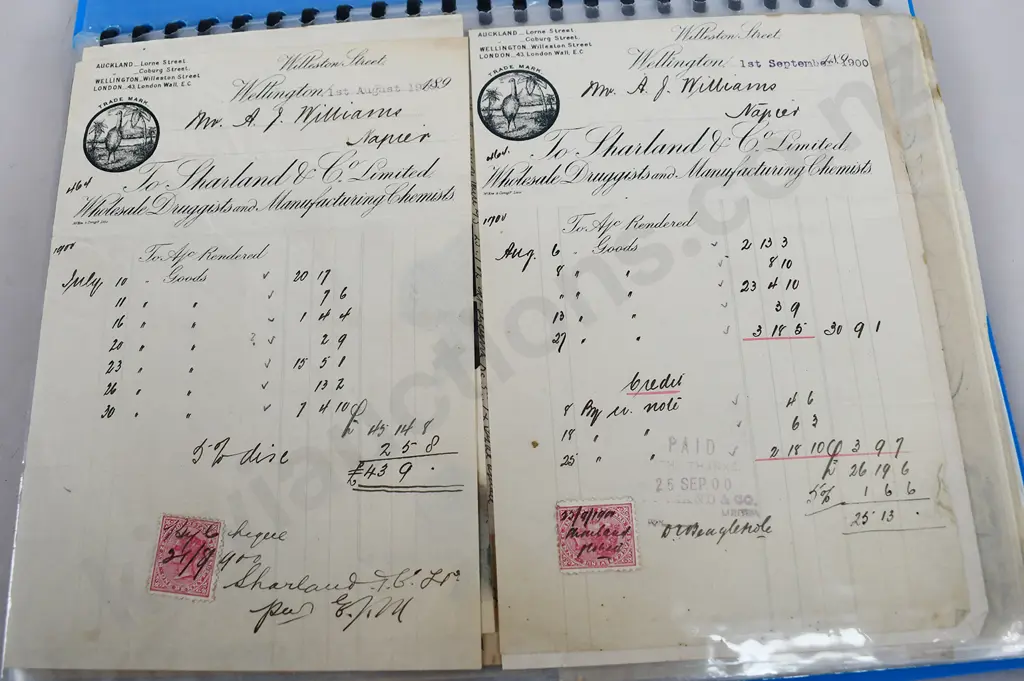 AUCKLAND_ Lorne Street.
Coburg Street.
WELLINGTON_ Willeston Street
LONDON_ 43. London Wall, E.C
TRADE MARK
Willeston Street.
Wellington, 1st August 189
Mr. A. J. Williams
Napier
464
To Sharland & Co. Limited
Wholesale Druggists and Manufacturing Chemists
1900
To A/c Rendered
July 10 - Goods √ 20 17
11 " " √ 7 6
16 " " √ 1 4 4
20 " " √ 2 9
23 " " √ 15 5 1
26 " " √ 13 2
30 " " √ 7 4 10
£ 45 14 8
5% disc 2 5 8
£43 9 .
By Cheque
21/8/900
Sharland & Co. Ld.
per E.J.M
AUCKLAND_ Lorne Street.
Coburg Street.
WELLINGTON_ Willeston Street
LONDON_ 43. London Wall, E.C.
TRADE MARK
Willeston Street.
Wellington, 1st September 1900
Mr. A. J. Williams
Napier
464.
To Sharland & Co. Limited
Wholesale Druggists and Manufacturing Chemists
1900
To A/c Rendered
Aug. 6 - Goods √ 2 13 3
8 " " √ 8 10
" " √ 23 4 10
13 " " √ 3 9
27 " " √ 3 18 5 30 9 1
Credit
8 By cr. note √ 4 6
18 " " √ 6 3
25 " " √ 2 18 10 3 9 7
£ 26 19 6
5% 1 6 6
25 13 .
PAID
25 SEP. 00
& CO.